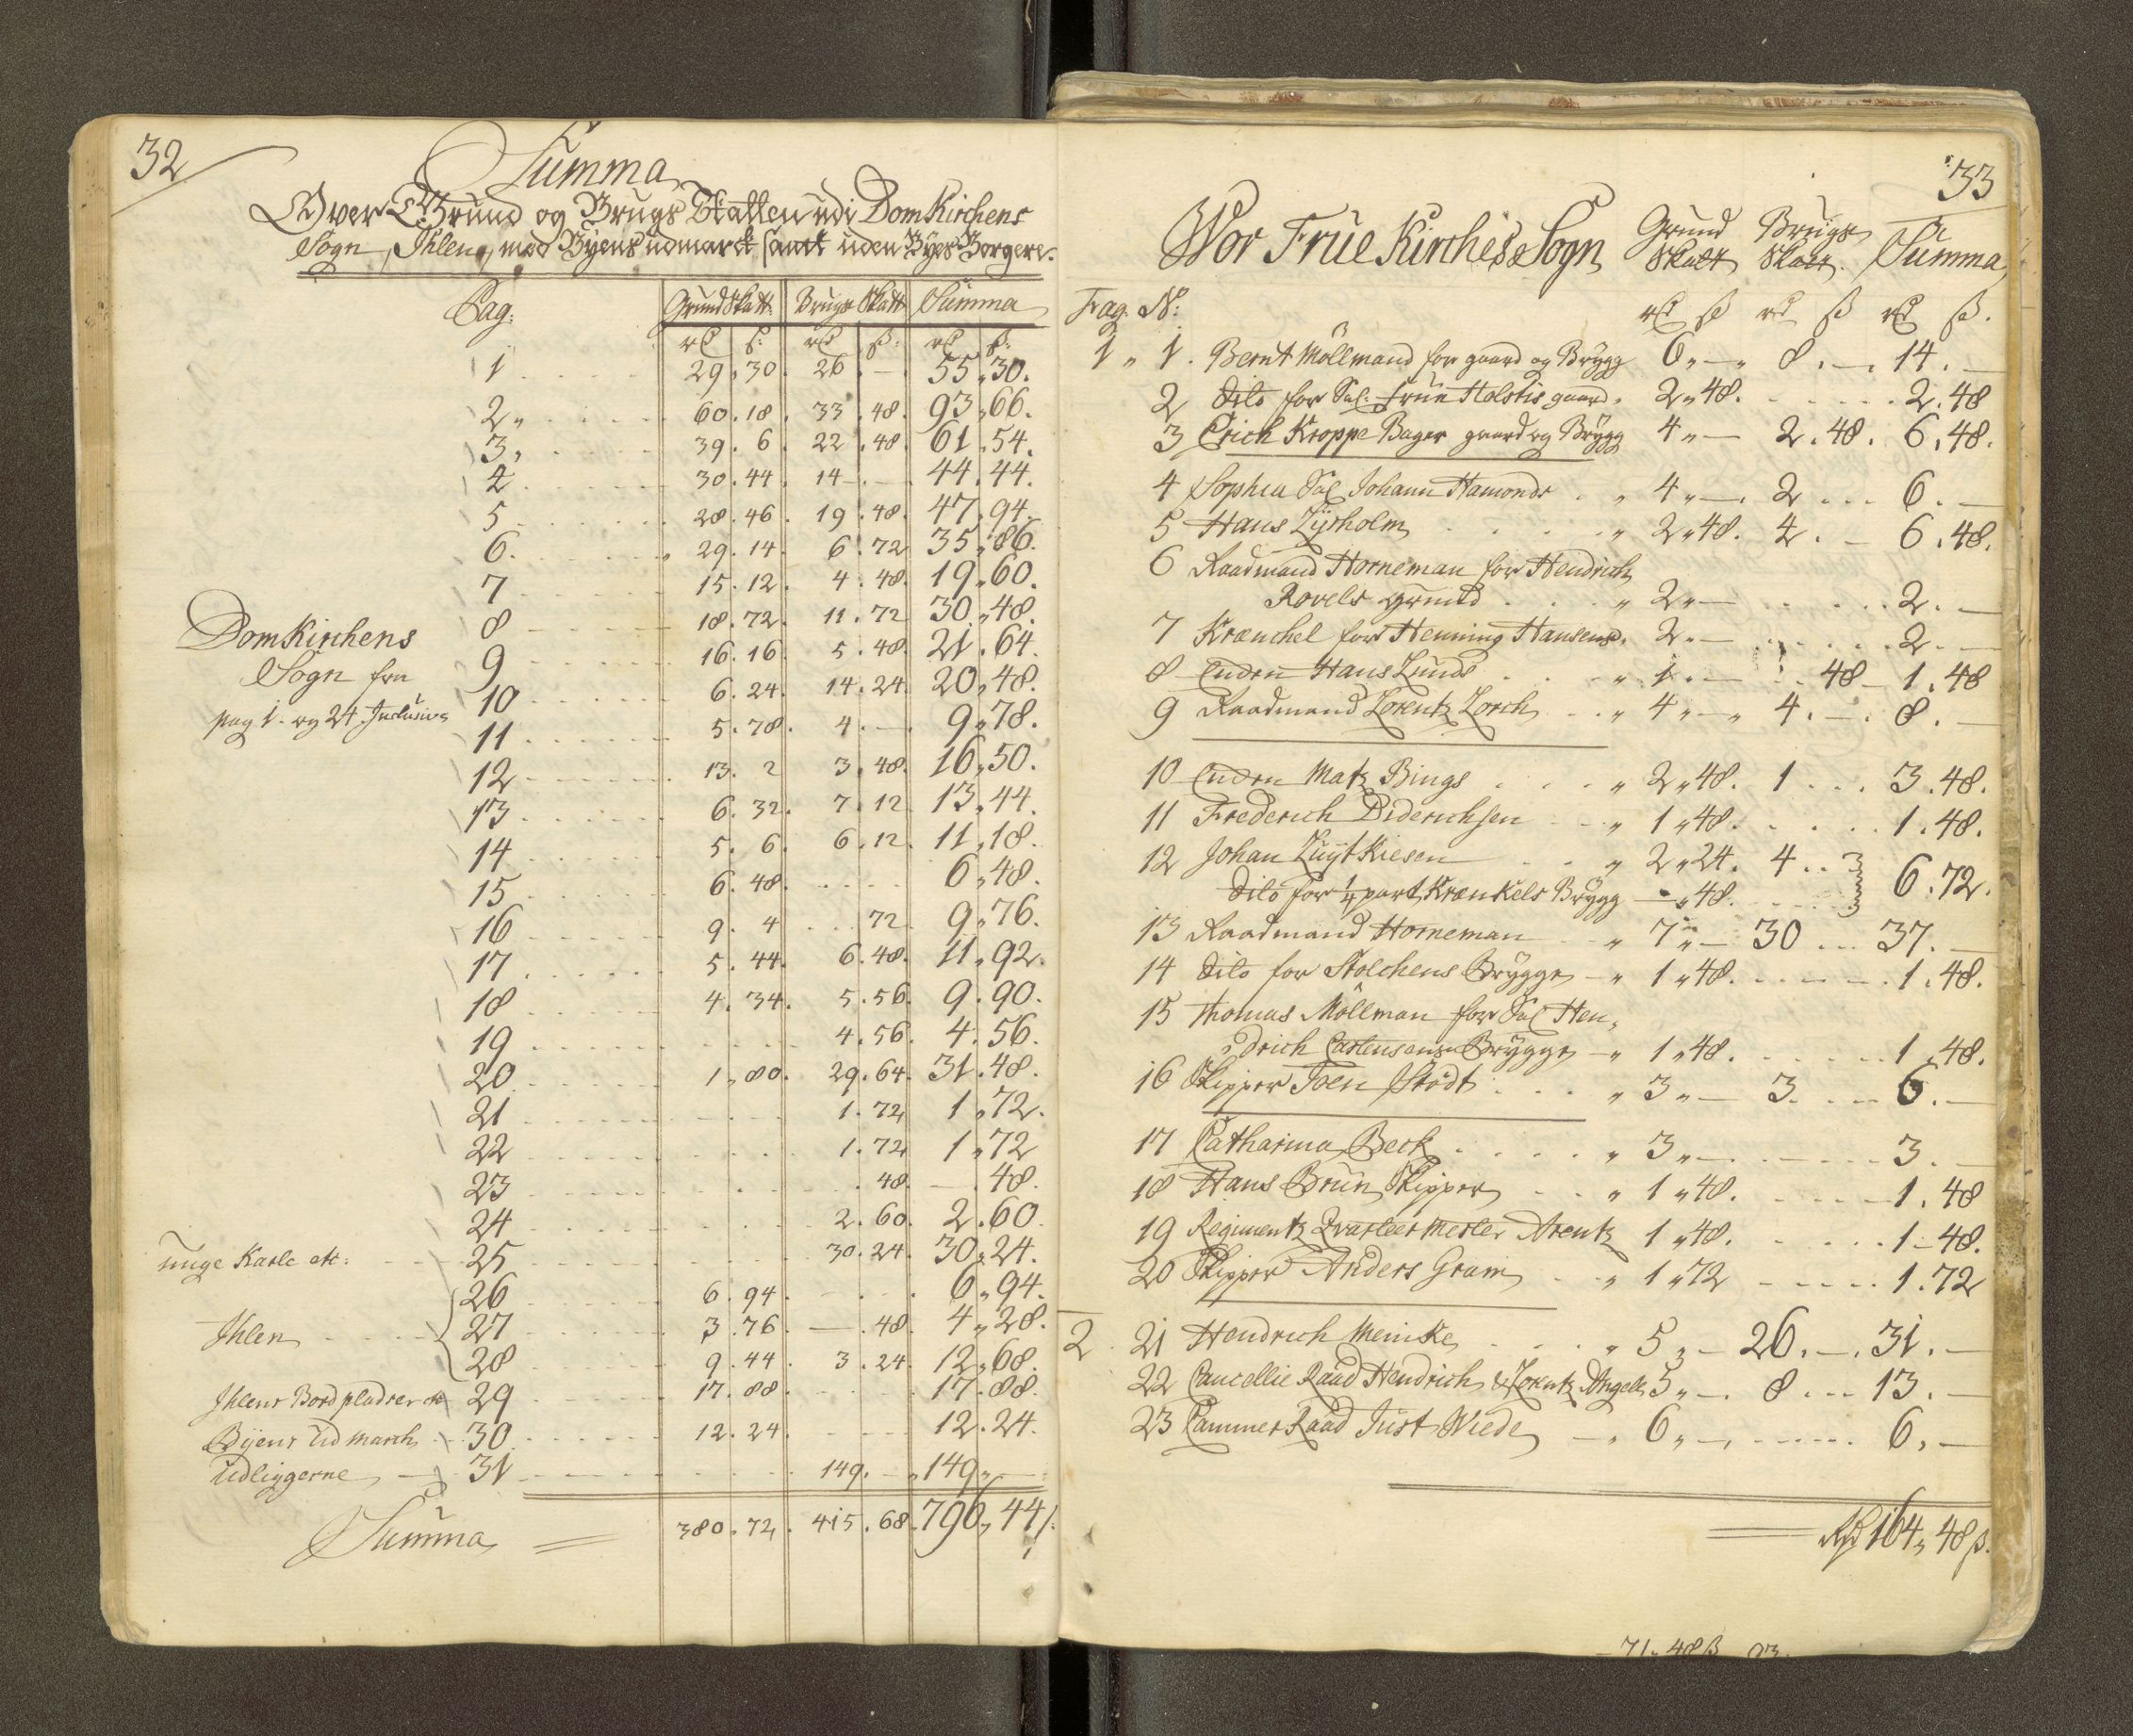 32
Summa
Over Grund og Brugs Skatten udi DomKirchens
Sogn, Ihlen, med Byens udmarck samt uden Byes Borgere.
Pag: GrundSkatt Brugs Skatt Summa
rd ß: rd ß: rd ß:
1 29.30. 26.—. 55.30.
2 60.18. 33.48. 93.66.
3 39.6. 22.48. 61.54.
4 30.44. 14.—. 44.44.
5 28.46. 19.48. 47.94.
6. 29.14. 6.72 35.86.
7 15.12. 4.48. 19.60.
DomKirchens 8 18.72. 11.72 30.48.
Sogn fra 9 16.16. 5.48. 21.64.
pag 1. og 24 Inclusive 10 6.24. 14.24. 20.48.
11 5.78. 4.—. 9.78.
12 13.2 3.48. 16.50.
13 6.32. 7.12. 13.44.
14 5.6. 6.12. 11.18.
15 6.48. 6.48.
16 9.4 72. 9.76.
17 5.44. 6.48. 11.92.
18 4.34. 5.56. 9.90.
19 4.56. 4.56.
20 1.80. 29.64. 31.48.
21 1.72 1.72.
22 1.72 1.72
23 .48. —.48.
24 2.60. 2.60.
unge Karle etc: 25 30.24. 30.24.
26 6.94. 6.94.
Ihlen 27 3.76. —.48. 4.28.
28 9.44. 3.24. 12.68.
Ihlens Bordpladser 29 17.88. 17.88.
Byens Udmarch 30 12.24. 12.24.
Udliggerne 31 149.— 149.—
Summa 380.72. 415.68. 796.44
33
Wor Frue Kirches Sogn Grund Skatt Brugs Skatt. Summa
Frag. No: rd ß rd ß rd ß.
1 1. Bernt Möllmand for gaard og Brygg 6.— 8.— 14.—
2 dito for Sal. Frue Holstis gaard. 2.48. 2.48
3 Erich Kroppe Bager gaard og Brygg 4.— 2.48. 6.48.
4 Sophia Sal Johann Hamonds 4.— 2 6.—
5 Hans Zysholm 2.48. 4.— 6.48.
6 Raadmand Horneman for Hendrich
Rovels grund 2.— 2.—
7 Kraenchel for Henning Hansens. 2.— 2.—
8 Enden Hans Lunds 1.— 48 1.48
9 Raadmand Lorentz Lorch 4.— 4.— 8.—
10 Enden Matz Bings 2.48. 1 3.48.
11 Frederich Diderichsen 1.48. 1.48.
12 Johan Luyt Kiesen 2.24. 4
dito for 1/4 part Krænkels Brygg —.48. 6.72.
13 Raadmand Horneman 7.— 30 37.—
14 dito for Stolchens Brygge 1.48. 1.48.
15 Thomas Möllman for Sal Hen,
drich Carstensens Brygge 1.48. 1.48.
16 Skipper Joen Stödt 3.— 3. 6.—
17 Catharina Beck 3.— 3.—
18 Hans Brun Skipper 1.48. 1.48
19 Regimentz Qvarteer Mester Arentz 1.48. 1.48.
20 Skipper Anders Gram 1.72 1.72
2 21 Hendrich Meinke 5.— 26.— 31.—
22 Cancellie Raad Hendrich & Lorentz Angell 5.— 8 13.—
23 Cammer Raad Just Wiede 6.— 6.—
Rd 164.48 ß.
71.48 ß 93.